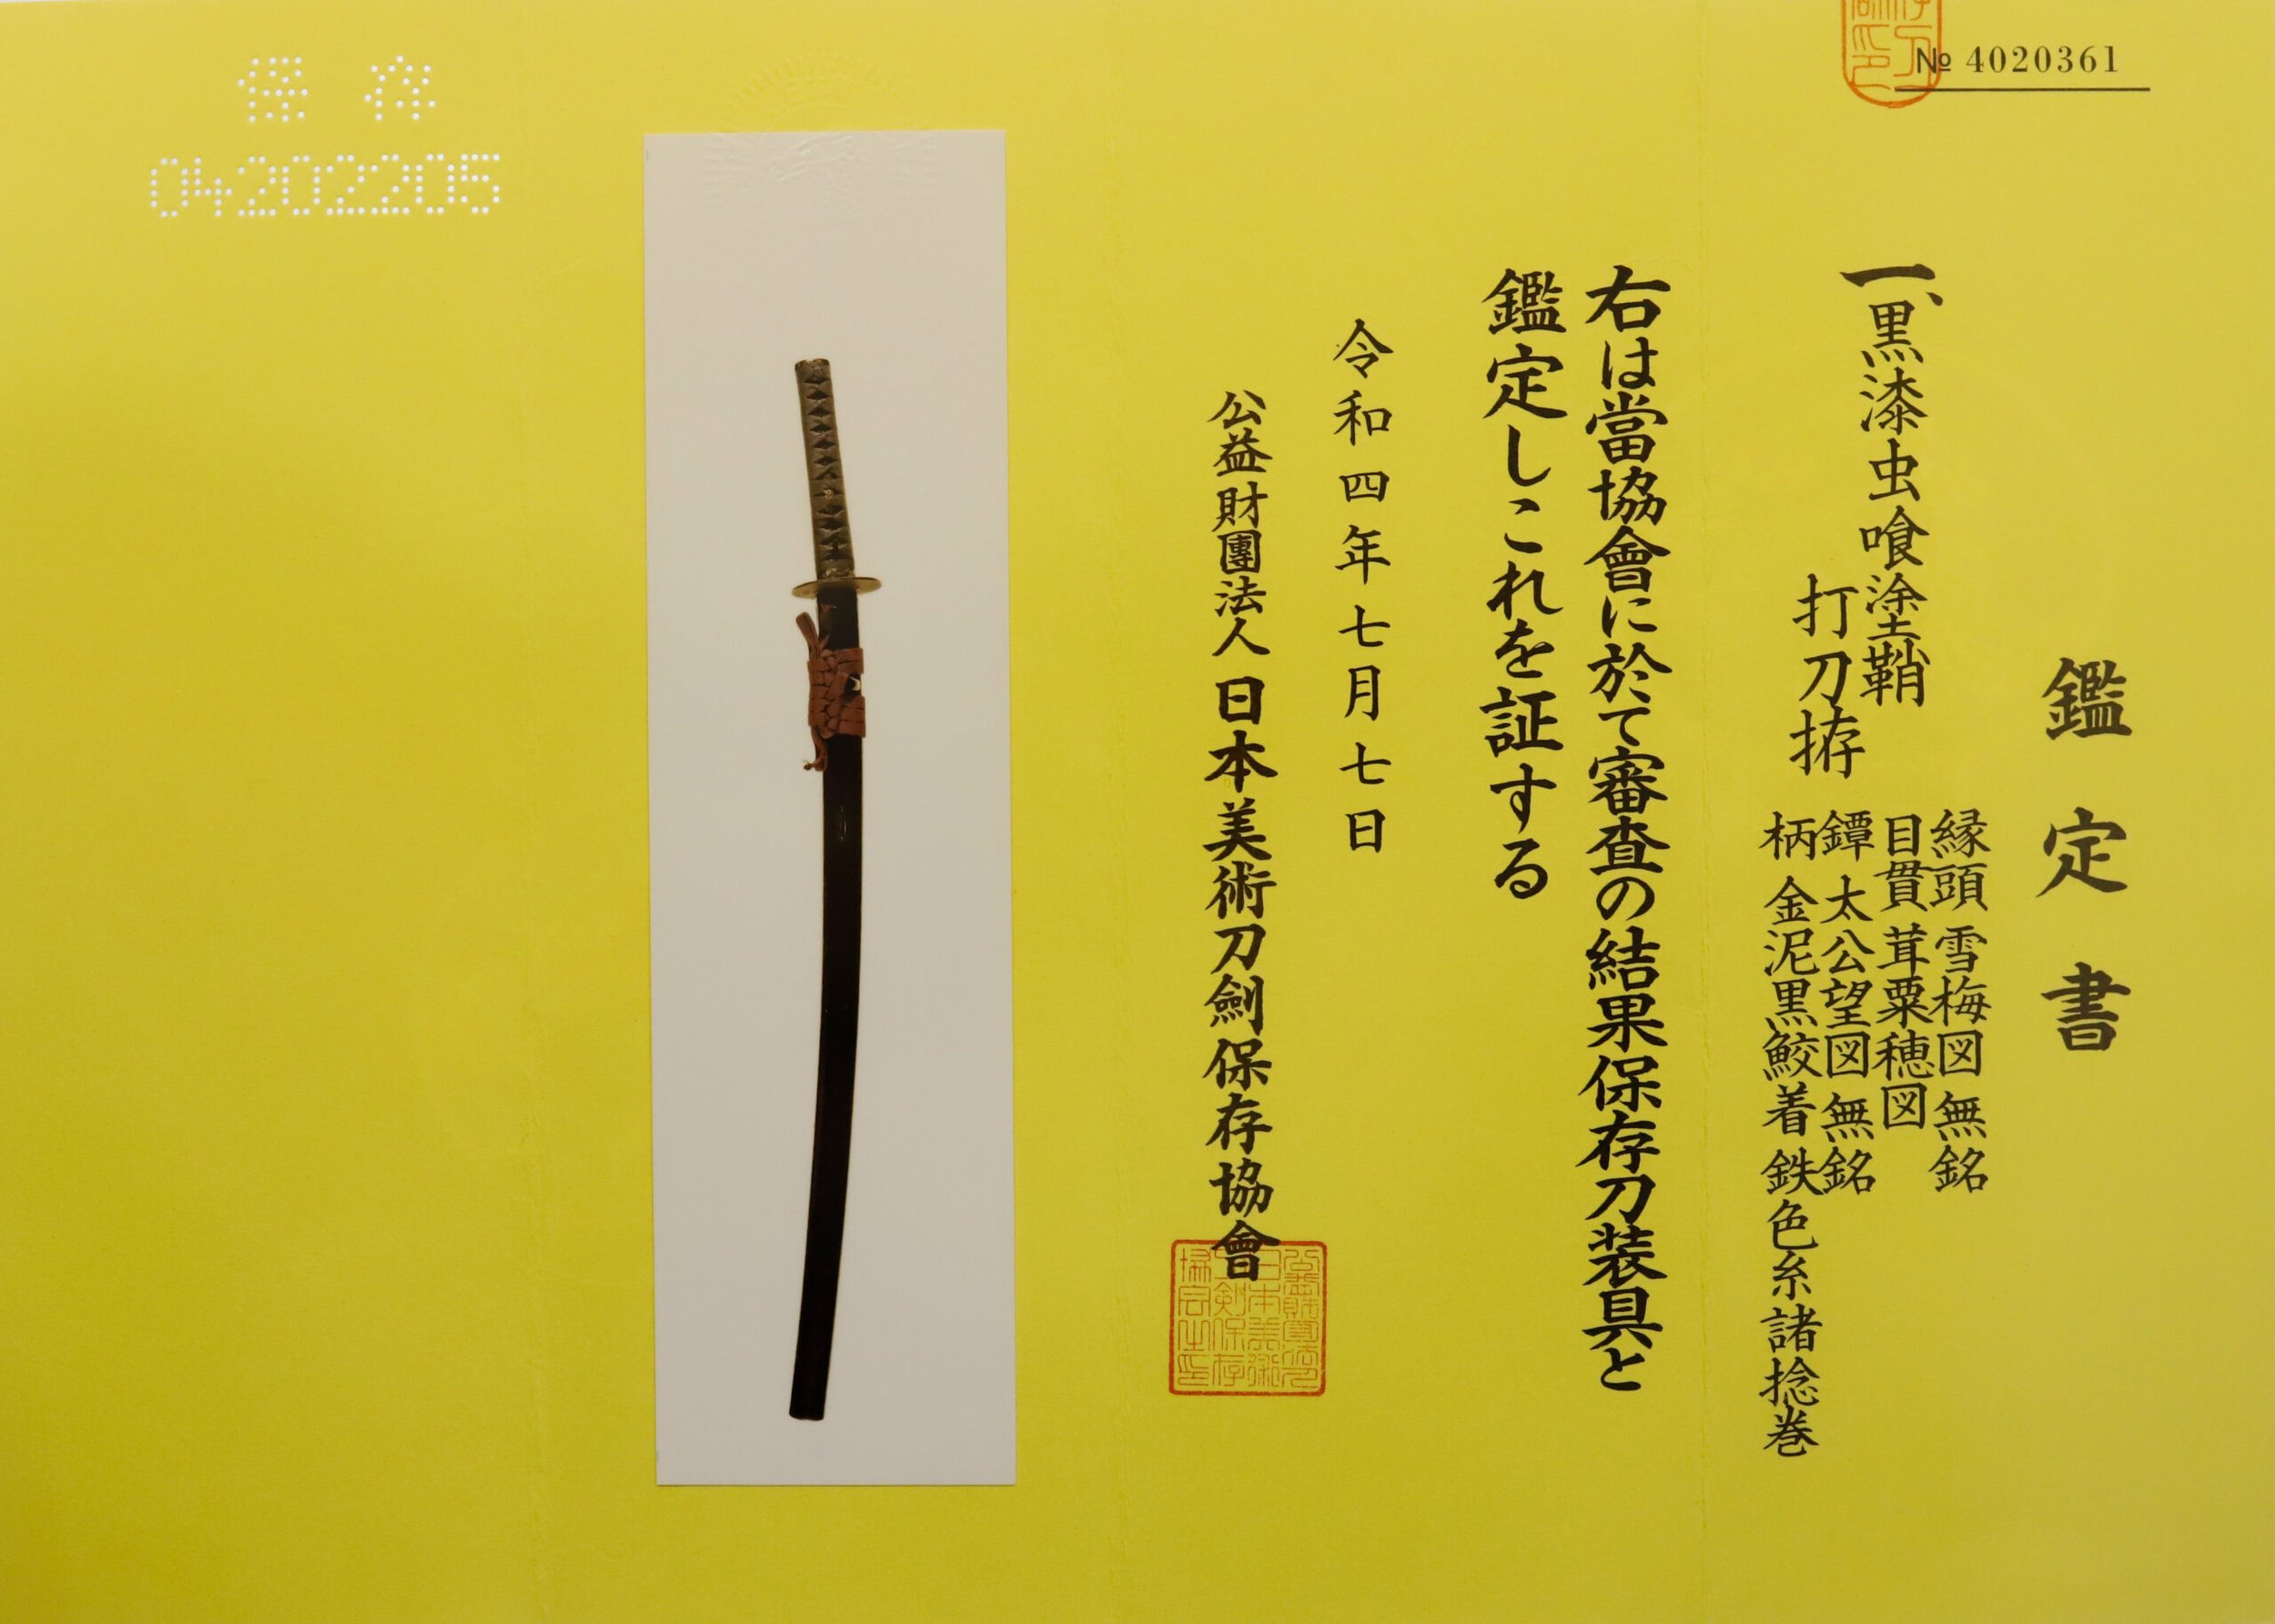 № 4020361
鑑定書
一、黒漆虫喰塗鞘
打刀拵
縁頭 雪梅図 無銘
目貫 茸粟穂図
鐔 太公望図 無銘
柄 金泥黒鮫着 鉄色糸諸捻巻
右は當協會に於て審査の結果保存刀装具と
鑑定しこれを証する
令和四年七月七日
公益財團法人 日本美術刀劍保存協會
保存
04202205